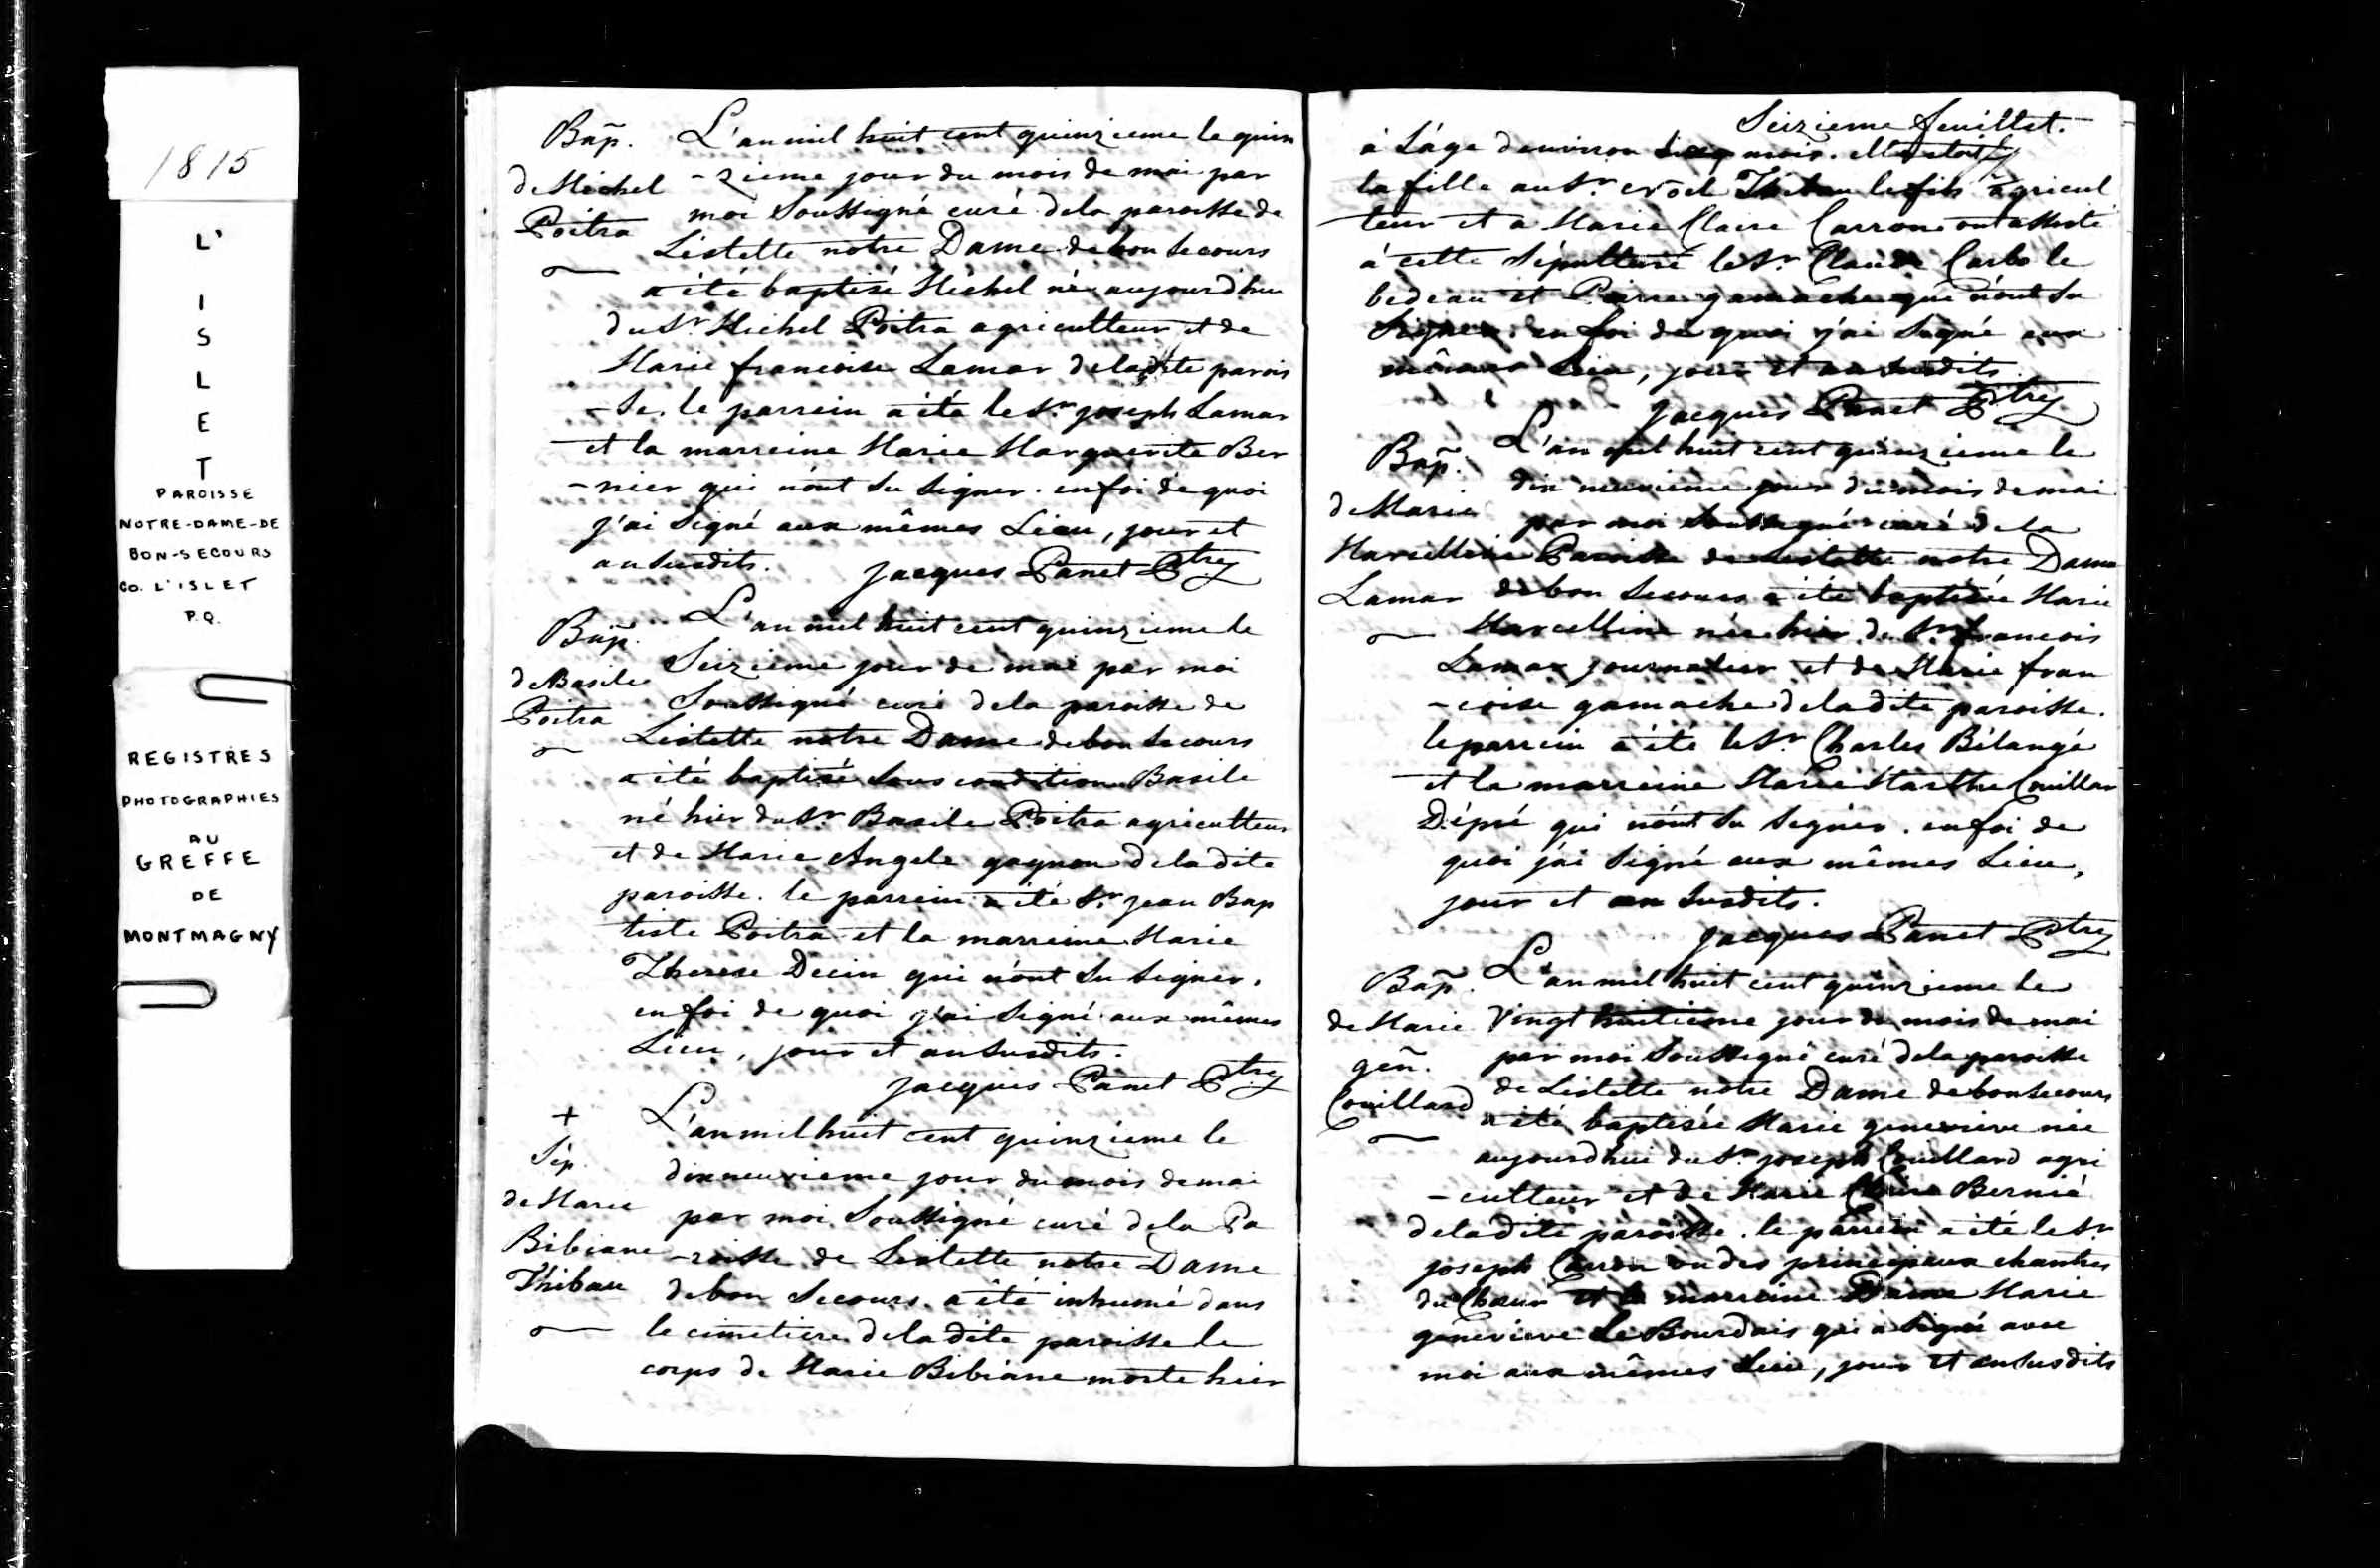 1815
L'
I
S
L
E
T
PAROISSE
NOTRE-DAME-DE
BON-SECOURS
CO. L'ISLET
P.Q.
REGISTRES
PHOTOGRAPHIES
AU
GREFFE
DE
MONTMAGNY
Bap. L'an mil huit cent quinzieme le quin
de Michel -zieme jour du mois de mai par
Poitra moi Soussigné curé dela paroisse de
Lislette notre Dame de bon Secours
a été baptisé Michel né aujourd'hui
du Sr Michel Poitra agriculteur et de
Marie francoise Lamar deladite parois
-Se. le parrein a été le Sr joseph Lamar
et la marreine Marie Marguerite Ber
-nier qui n'ont Su Signer. enfoi de quoi
j'ai Signé aux mêmes Lieu, jour et
an Susdits. jacques Panet Ptre
Bap. L'an mil huit cent quinzieme le
Seizieme jour de mai par moi
de Basile Soussigné curé dela paroisse de
Poitra Lislette notre Dame debon Secours
a été baptisé Sous condition Basile
né hier du Sr Basile Poitra agriculteur
et de Marie Angele gagnon deladite
paroisse. le parrein a été Sr jean Bap
tiste Poitra et la marreine Marie
Therese Decin qui n'ont Su Signer.
enfoi de quoi j'ai Signé aux mêmes
Lieu, jour et an Susdits.
jacques Panet Ptre
+ L'an mil huit cent quinzieme le
Sép. dixneuvieme jour du mois de mai
de Marie par moi Soussigné curé dela Pa
Bibiane -roisse de Lislette notre Dame
Thibau debon Secours a été inhumé dans
le cimetiere deladite paroisse le
corps de Marie Bibiane morte hier
Seizieme feuillet.
à l'âge d'environ mois. elle etoit
la fille au Sr Thibau le fils agricul
teur et a Marie Claire Carron ont assisté
à cette Sépulture le Sr Claude le
bedeau et Pierre gamache qui n'ont Su
Signer. en foi de quoi j'ai Signé aux
mêmes Lieu, jour et an Susdits.
jacques Panet Ptre
Bap. L'an mil huit cent quinzieme le
dix neuvieme jour du mois de mai
de Marie par moi Soussigné curé dela
Marcelline Paroisse de Lislette notre Dame
Lamar debon Secours a été baptisée Marie
Marcelline née hier du Sr francois
Lamar journalier et de Marie fran
-coise gamache deladite paroisse.
le parrein a été le Sr Charles Bélangé
et la marreine Marie Marthe Couillar
Dépré qui n'ont Su Signer. enfoi de
quoi j'ai Signé aux mêmes Lieu,
jour et an Susdits.
jacques Panet Ptre
Bap. L'an mil huit cent quinzieme le
de Marie Vingt huitieme jour du mois de mai
gen. par moi Soussigné curé dela paroisse
Couillard de Lislette notre Dame de bonsecours
a été baptisée Marie genevieve née
aujourdhui du Sr joseph Couillard agri
-culteur et de Marie Claire Bernié
deladite paroisse. le parrein a été le Sr
joseph Caron un des principaux chantres
du Chœur et la marreine Dame Marie
genevieve Le Bourdais qui a Signé avec
moi aux mêmes Lieu, jour et an Susdits